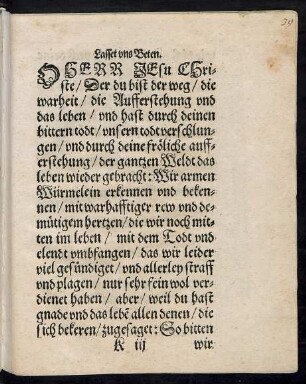 Lasset vns Beten.
O HERR JEsu CHri-
ste/ Der du bist der weg/ die
warheit/ die Aufferstehung vnd
das leben/ vnd hast durch deinen
bittern todt/ vnsern todt verschlun-
gen/ vnd durch deine fröliche auff-
erstehung/ der gantzen Weldt das
leben wieder gebracht: Wir armen
Würmelein erkennen vnd beken-
nen/ mit warhafftiger rew vnd de-
mütigem hertzen/ die wir noch mit-
ten im leben/ mit dem Todt vnd
elendt vmbfangen/ das wir leider
viel gesündiget/ vnd allerley straff
vnd plagen/ nur sehr fein wol ver-
dienet haben/ aber/ weil du hast
gnade vnd das lebē allen denen/ die
sich bekeren/ zugesaget: So bitten
K iij wir